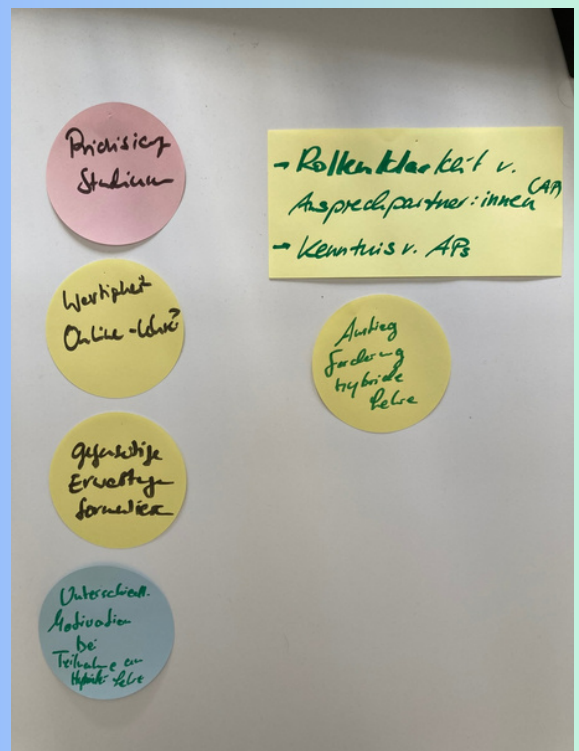 Studium
Wertigkeit
Online-Lehre?
gegenseitige
Erwartungen
formulieren
Unterschiedl.
Motivation
bei
Teilnahme an
Hybrider Lehre
→ Rollenklarheit v.
Ansprechpartner:innen (AP)
→ Kenntnis v. APs
Hybride
Lehre